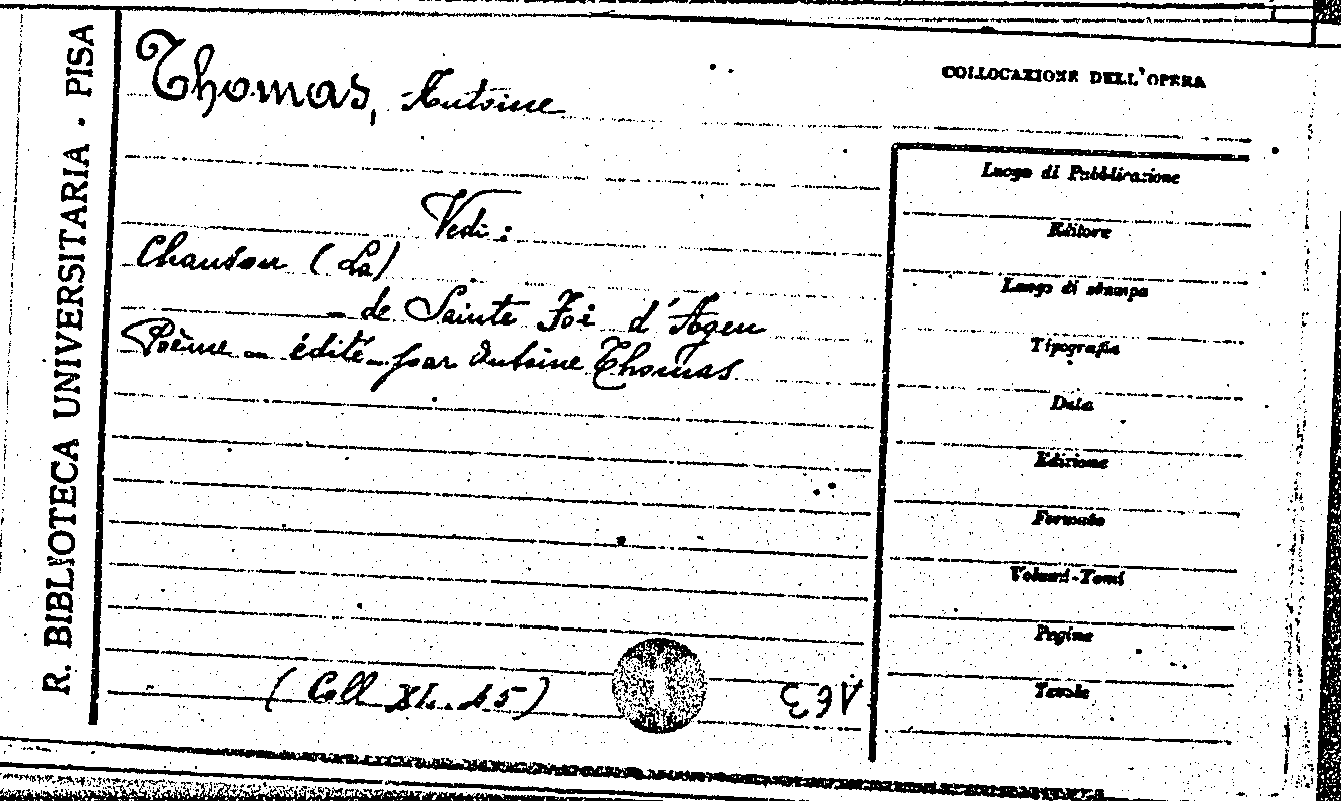 R. BIBLIOTECA UNIVERSITARIA - PISA
Thomas, Antoine
Vedi:
Chanson (La)
- de Sainte Foi d'Agen
Poème - édité - par Antoine Thomas
(Coll XI. 45)
COLLOCAZIONE DELL'OPERA
Luogo di Pubblicazione
Editore
Luogo di stampa
Tipografia
Data
Edizione
Formato
Volumi-Tomi
Pagine
Tavole